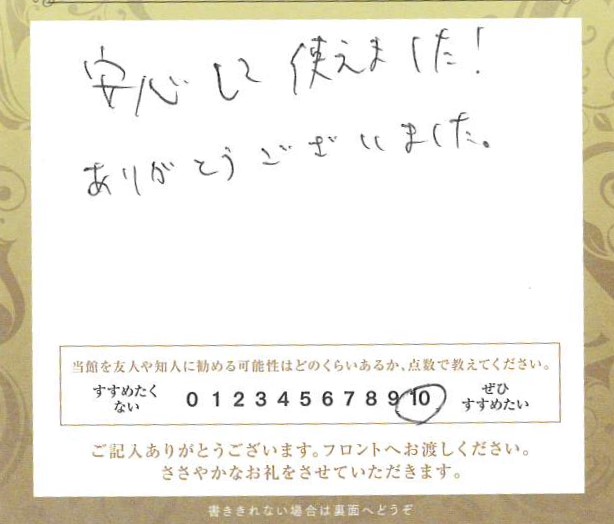 安心して使えました!
ありがとうございました。
当館を友人や知人に勧める可能性はどのくらいあるか、点数で教えてください。
すすめたく
ない
0 1 2 3 4 5 6 7 8 9 10
ぜひ
すすめたい
ご記入ありがとうございます。フロントへお渡しください。
ささやかなお礼をさせていただきます。
書ききれない場合は裏面へどうぞ